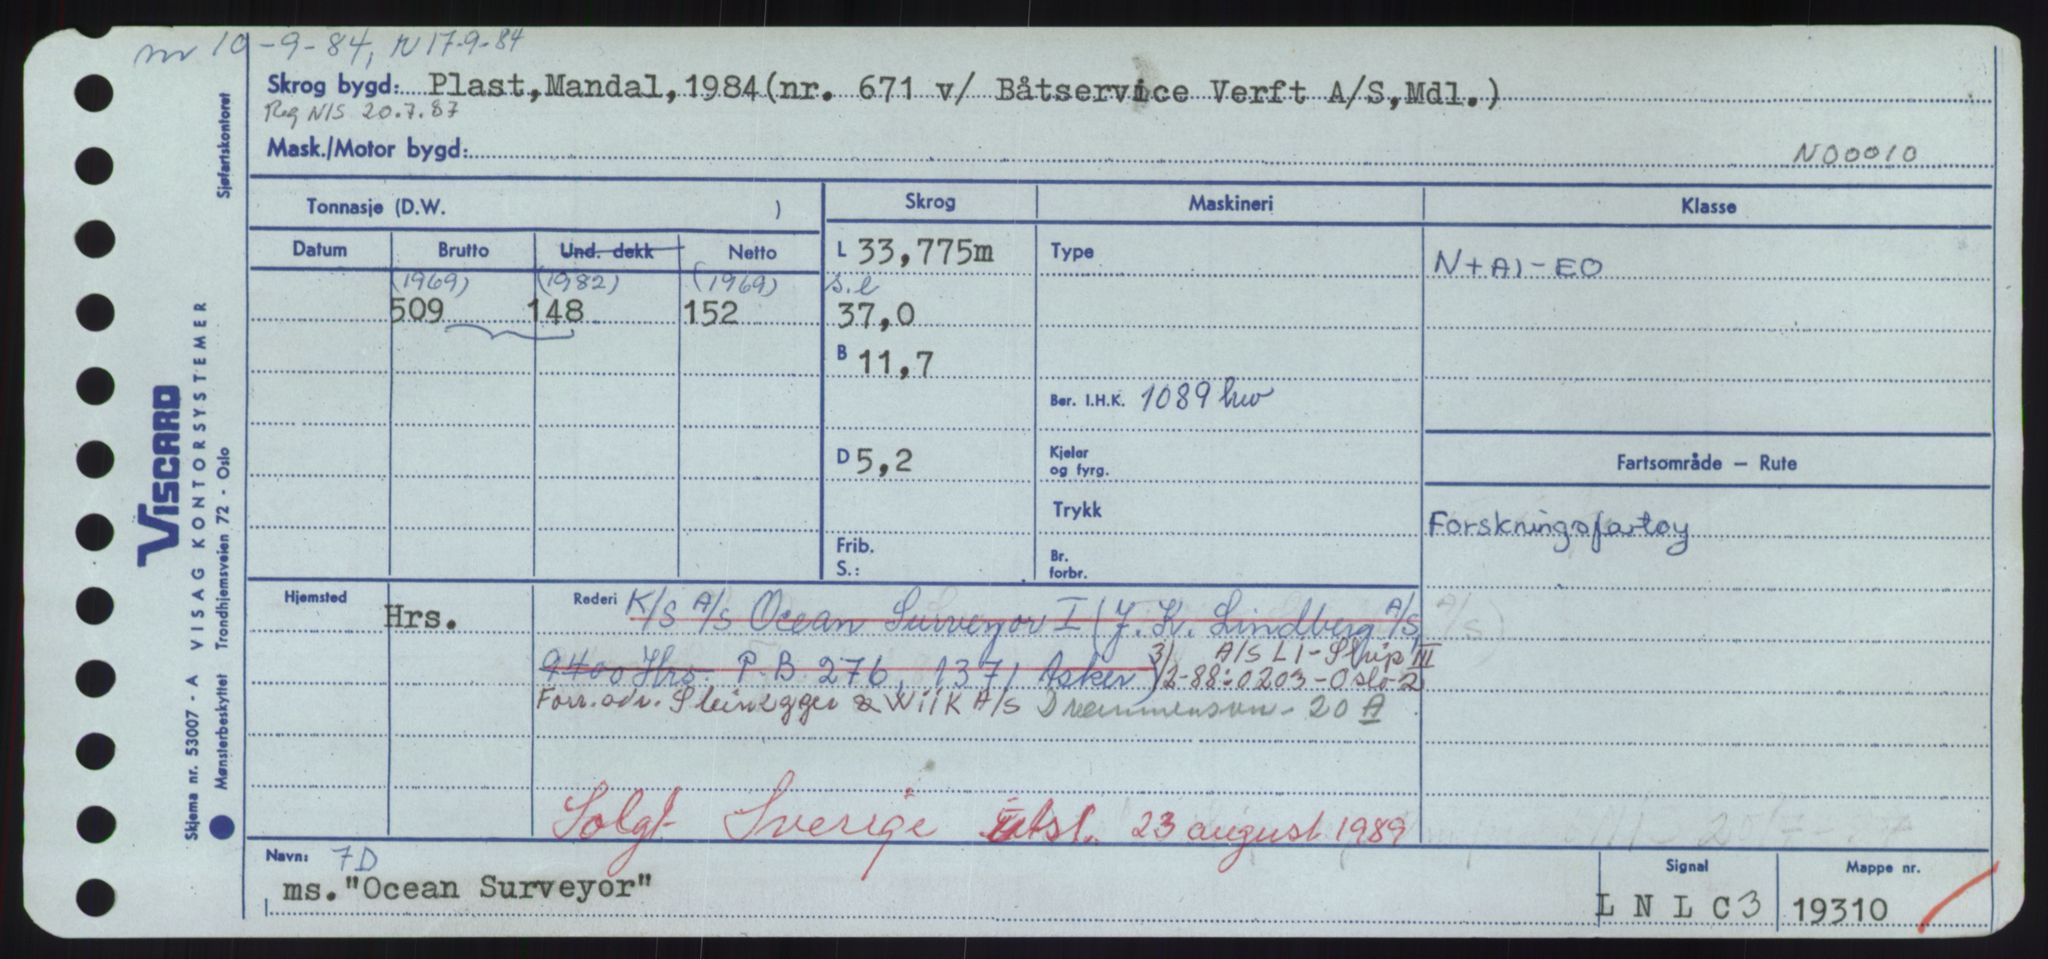 nr 10-9-84, N 17-9-84
Skrog bygd: Plast, Mandal, 1984 (nr. 671 v/ Båtservice Verft A/S, Mdl.)
Reg NIS 20.7.87
Mask./Motor bygd:
N00010
Tonnasje (D.W. )
Skrog
Maskineri
Klasse
Datum
Brutto
Und. dekk
Netto
L 33,775m
Type
N+A1-EO
(1969) (1982) (1969)
s.l
509 148 152
37,0
B 11,7
Ber. I.H.K. 1089 hw
D 5,2
Kjeler
og fyrg.
Fartsområde — Rute
Trykk
Forskningsfartøy
Frib.
S.:
Br.
forbr.
Hjemsted
Hrs.
Rederi K/S A/S Ocean Surveyor I (J. K. Lindberg A/S,
9400 Hrs. P.B. 276, 1371 Asker)
3) A/S LI-Ship III
2-88: 0203-Oslo-2
Forr. adr. Steinegger & Wilk A/S Drammensvn. 20 A
Solgt Sverige utsl. 23 august 1989
Navn: 7D
ms. "Ocean Surveyor"
Signal
L N L C 3
Mappe nr.
19310
Sjøfartskontoret
VISCARD
VISAG KONTORSYSTEMER
Trondhjemsveien 72 - Oslo
Skjema nr. 53007 - A
Mønsterbeskyttet